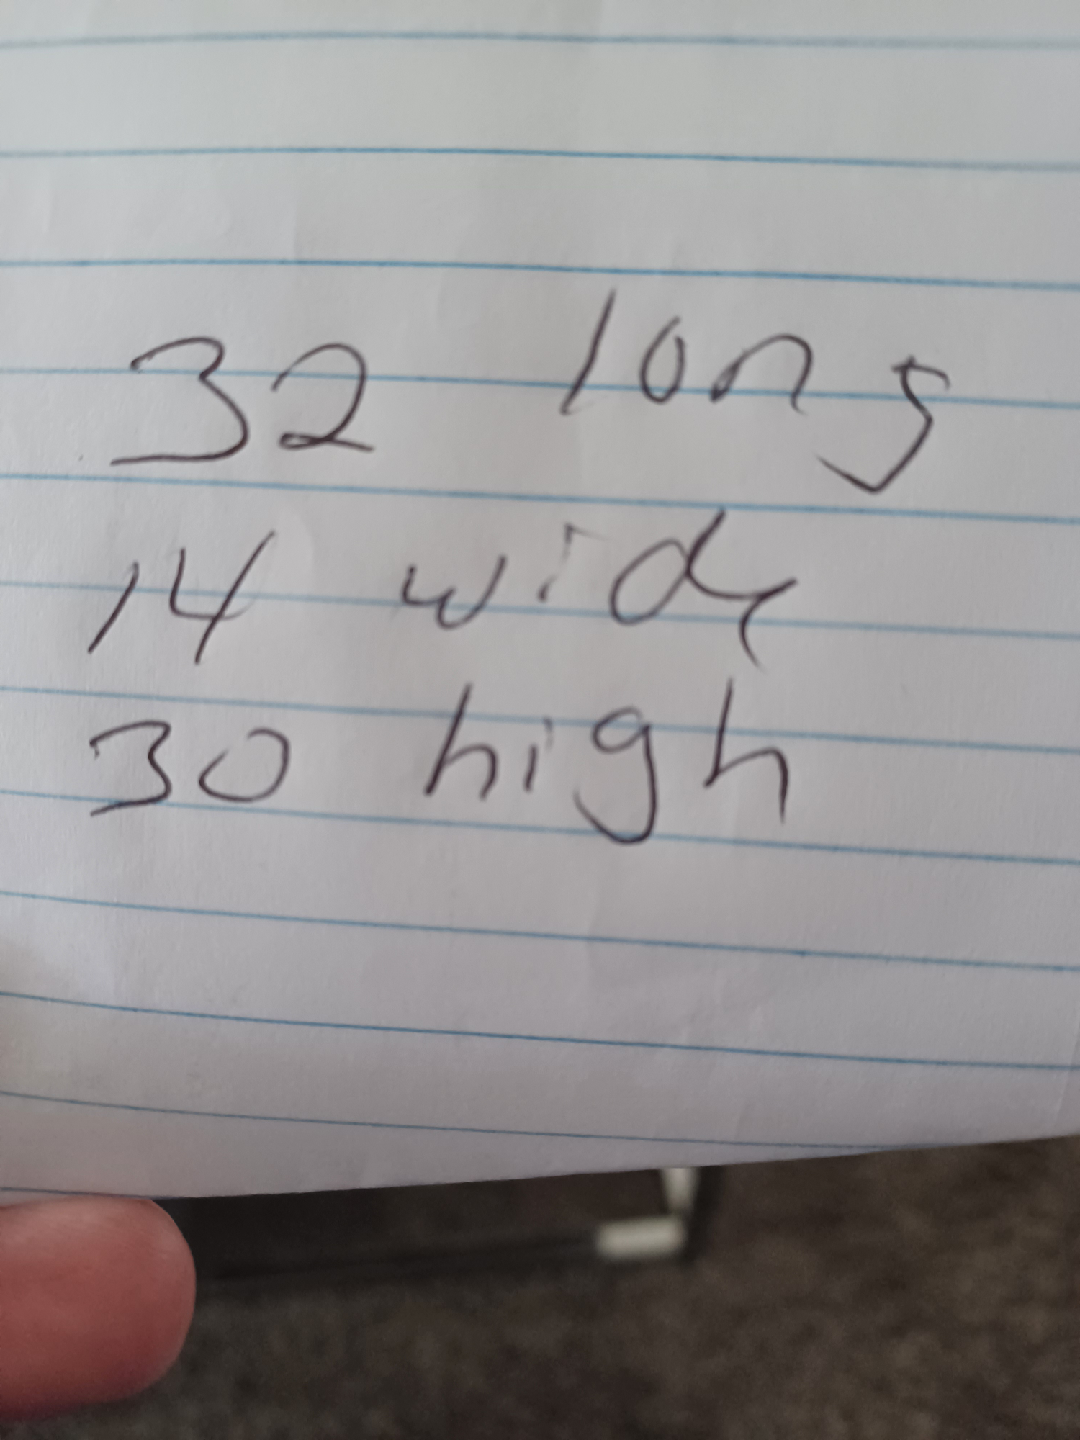 32 long
14 wide
30 high